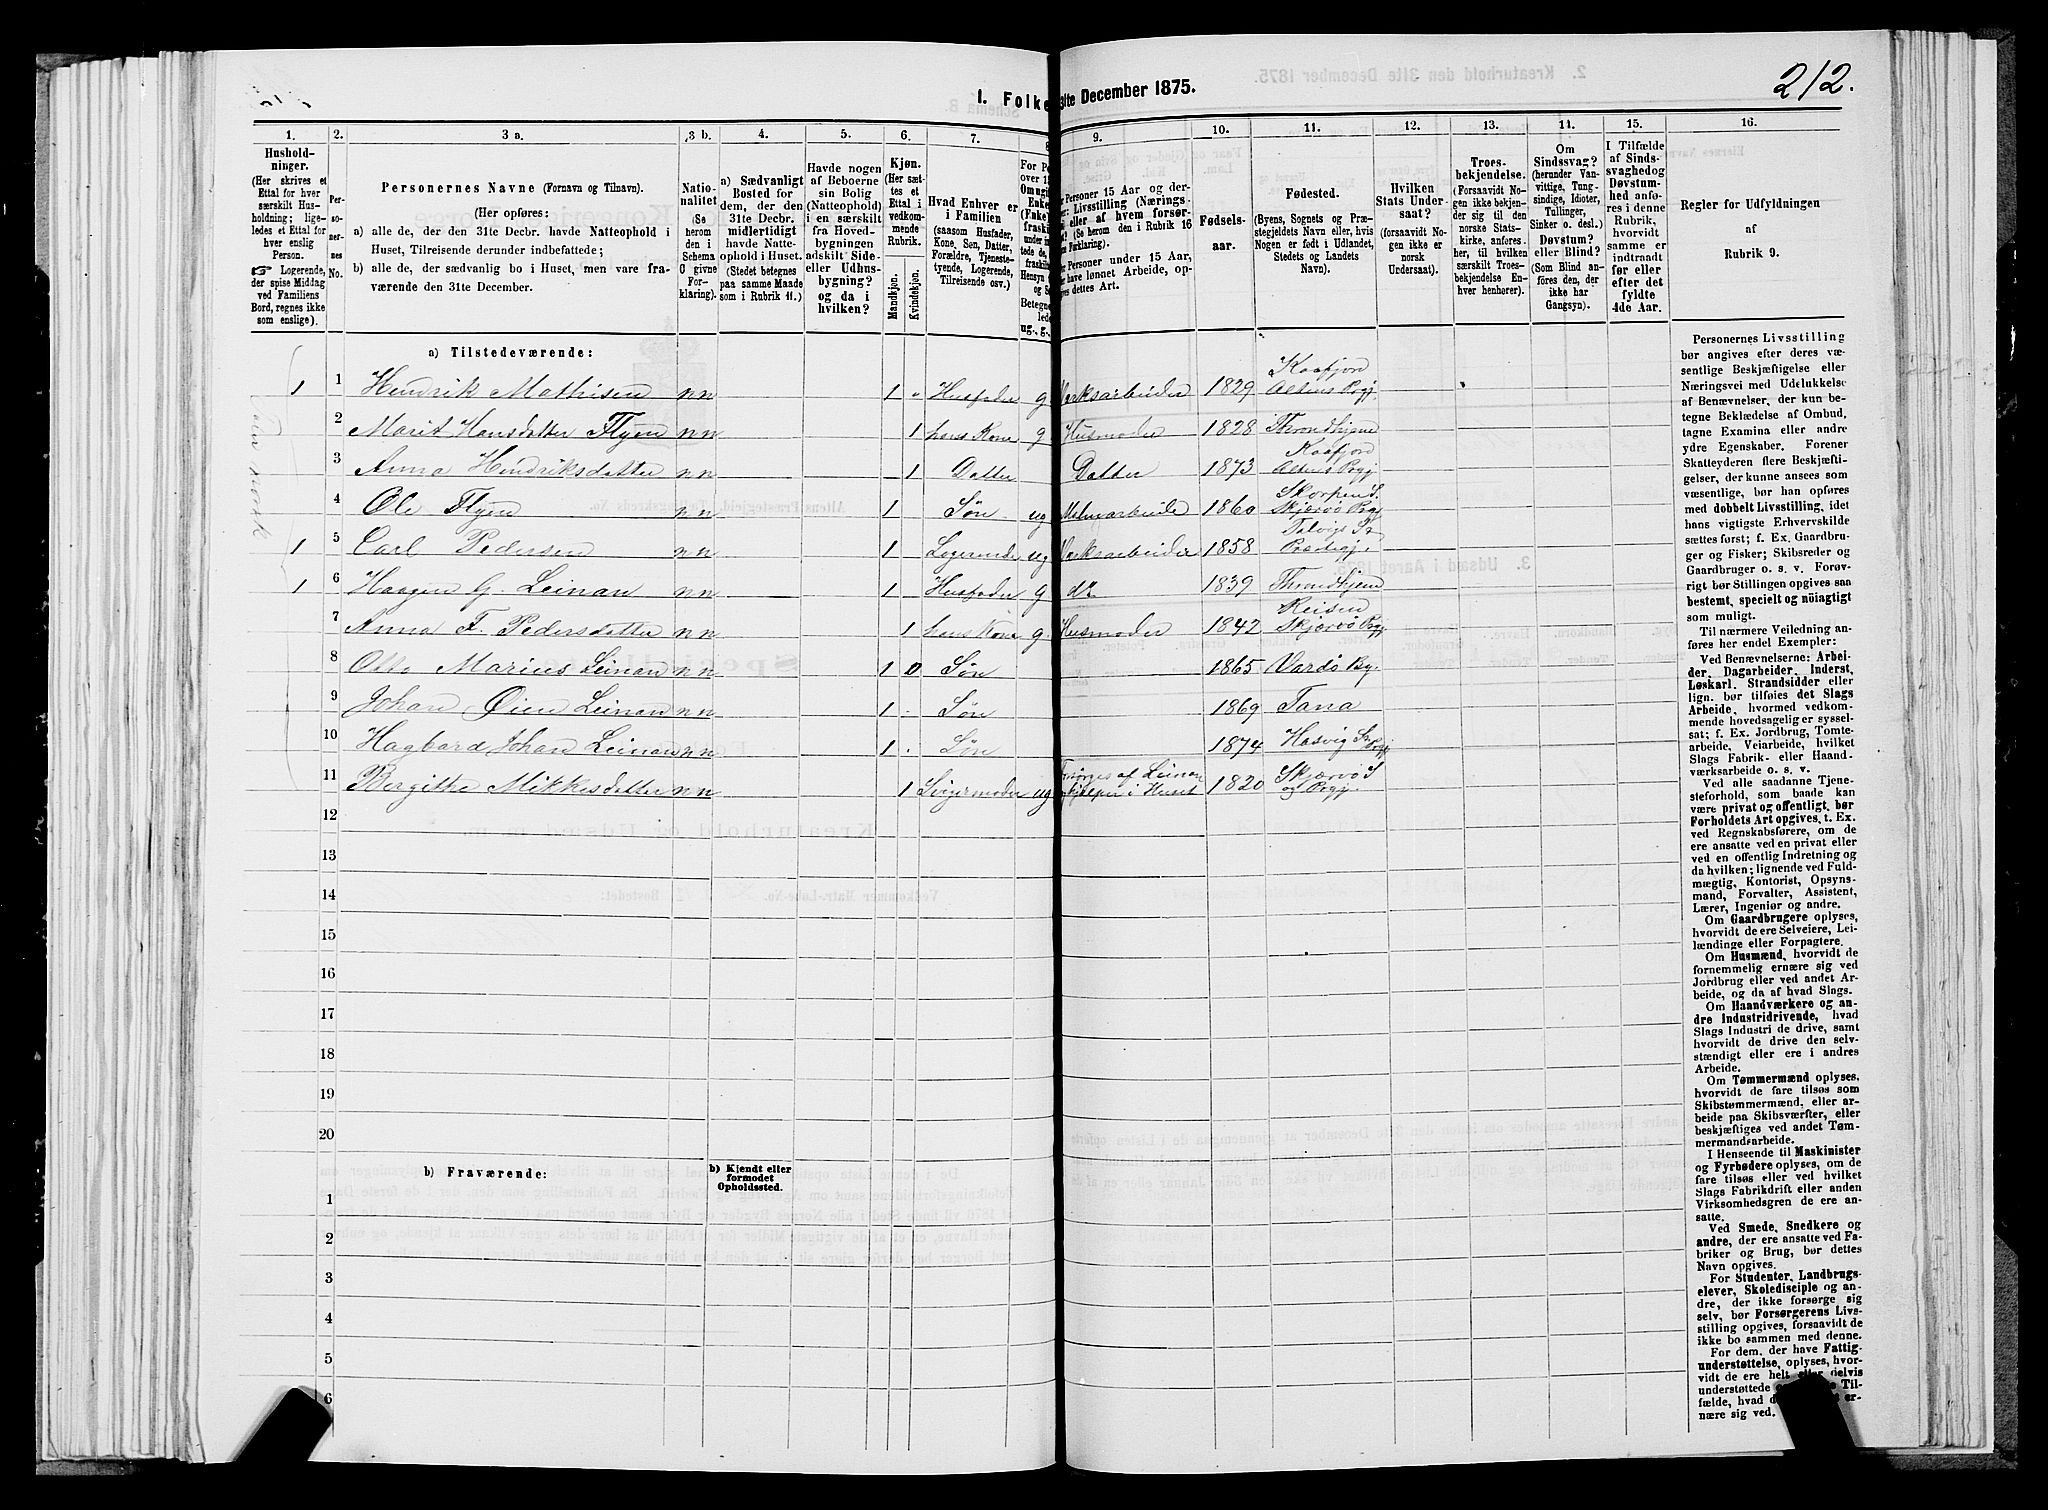 212.
I. Folke 31te December 1875.
1. 2. 3 a. 3 b. 4. 5. 6. 7. 8 9. 10. 11. 12. 13. 14. 15. 16.
Hushold-
ninger.
(Her skrives et
Ettal for hver
særskilt Hus-
holdning; lige-
ledes et Ettal for
hver enslig
Person.
☞ Logerende,
der spise Middag
ved Familiens
Bord, regnes ikke
som enslige).
Per-
so-
ner-
nes
No.
Personernes Navne (Fornavn og Tilnavn).
(Her opføres:
a) alle de, der den 31te Decbr. havde Natteophold i
Huset, Tilreisende derunder indbefattede;
b) alle de, der sædvanlig bo i Huset, men vare fra-
værende den 31te December.
Natio-
nalitet
(Se
herom
den i
Schema
C givne
For-
klaring).
a) Sædvanligt
Bosted for
dem, der den
31te Decbr.
midlertidigt
havde Natte-
ophold i Huset.
(Stedet betegnes
paa samme Maade
som i Rubrik 11.)
Havde nogen
af Beboerne
sin Bolig
(Natteophold)
i en særskilt
fra Hoved-
bygningen
adskilt Side-
eller Udhus-
bygning?
og da i
hvilken?
Kjøn.
(Her sæt-
tes et
Ettal i
vedkom-
mende
Rubrik.
Mandkjøn.
Kvindekjøn.
Hvad Enhver er
i Familien
(saasom Husfader,
Kone, Søn, Datter,
Forældre, Tjeneste-
tyende, Logerende,
Tilreisende osv.)
Fødsels-
aar.
Fødested.
(Byens, Sognets og Præ-
stegjeldets Navn eller, hvis
Nogen er født i Udlandet,
Stedets og Landets
Navn).
Hvilken
Stats Under-
saat?
(forsaavidt No-
gen ikke er
norsk
Undersaat).
Troes-
bekjendelse.
(Forsaavidt No-
gen ikke bekjen-
der sig til den
norske Stats-
kirke, anføres
her, til hvilken
særskilt Troes-
bekjendelse
Enhver henhører).
Om
Sindssvag?
(herunder Van-
vittige, Tung-
sindige, Idioter,
Tullinger,
Sinker o. desl.)
Døvstum?
eller Blind?
(Som Blind an-
føres den, der
ikke har
Gangsyn).
I Tilfælde
af Sinds-
svaghed og
Døvstum-
hed anfø-
res i denne
Rubrik,
hvorvidt
samme er
indtraadt
før eller
efter det
fyldte
4de Aar.
Regler for Udfyldningen
af
Rubrik 9.
a) Tilstedeværende:
1 1 Hendrik Mathisen nn 1 Husfader g Værksarbeider 1829 Kaafjord Altens Prgj.
2 Marit Hansdatter Flyen nn 1 hans Kone g. Husmoder 1828 Throndhjem
3 Anna Hendriksdatter nn 1 Datter Datter 1873 Kaafjord Altens Prgj.
4 Ole Flyen nn 1 Søn ug Malmarbeider 1860 Skorpen S. Skjervø Prgj
1 5 Carl Pedersen nn 1 Logerende ug Værksarbeider 1858 Talvigs S. Præstegj.
1 6 Haagen G. Leinan nn 1 Husfader g do 1839 Throndhjem
7 Anna F. Pedersdatter nn 1 hans Kone g. Husmoder 1842 Reisen Skjervø Prgj
8 Otto Marius Leinan nn 1 0 Søn 1865 Vardø By.
9 Johan Øien Leinan nn 1 Søn 1869 Tana
10 Hagbard Johan Leinan nn 1 Søn 1874 Hasvig S. Prgj
11 Bergitte Mikkelsdatter nn 1 Svigermoder ug Forsørges af Leinan hjelper i Huset 1820 Skjervø S og Prgj.
12
13
14
15
16
17
18
19
20
b) Fraværende:
b) Kjendt eller
formodet
Opholdssted.
1
2
3
4
5
6
Personernes Livsstilling
bør angives efter deres væ-
sentlige Beskjæftigelse eller
Næringsvei med Udelukkelse
af Benævnelser, der kun be-
tegne Beklædelse af Ombud,
tagne Examina eller andre
ydre Egenskaber. Forener
Skatteyderen flere Beskjæfti-
gelser, der kunne ansees som
væsentlige, bør han opføres
med dobbelt Livsstilling, idet
hans vigtigste Erhvervskilde
sættes først; f. Ex. Gaardbru-
ger og Fisker; Skibsreder og
Gaardbruger o. s. v. Forøv-
rigt bør Stillingen opgives saa
bestemt, specielt og nöiagtigt
som muligt.
Til nærmere Veiledning an-
føres her endel Exempler:
Ved Benævnelserne: Arbei-
der, Dagarbeider, Inderst,
Løskarl, Strandsidder eller
lign. bør tilføies det Slags
Arbeide, hvormed vedkom-
mende hovedsagelig er syssel-
sat; f. Ex. Jordbrug, Tomte-
arbeide, Veiarbeide, hvilket
Slags Fabrik- eller Haand-
værksarbeide o. s. v.
Ved alle saadanne Tjene-
steforhold, som baade kan
være privat og offentligt, bør
Forholdets Art opgives, t. Ex.
ved Regnskabsførere, om de
ere ansatte ved en privat eller
ved en offentlig Indretning og
da hvilken; ligelende ved Fuld-
mægtig, Kontorist, Opsyns-
mand, Forvalter, Assistent,
Lærer, Ingeniør og andre.
Om Gaardbrugere oplyses,
hvorvidt de ere Selveiere, Lei-
lændinge eller Forpagtere.
Om Husmænd, hvorvidt de
fornemmelig ernære sig ved
Jordbrug eller ved andet Ar-
beide, og da af hvad Slags.
Om Haandværkere og an-
dre Industridrivende, hvad
Slags Industri de drive, samt
hvorvidt de drive den selv-
stændigt eller ere i andres
Arbeide.
Om Tømmermænd oplyses,
hvorvidt de fare tilsøs som
Skibstømmermænd, eller ar-
beide paa Skibsværfter, eller
beskjæftiges ved andet Tøm-
mermandsarbeide.
I Henseende til Maskinister
og Fyrbødere oplyses, om de
fare tilsøs eller ved hvilket
Slags Fabrikdrift eller anden
Virksomhedsgren de ere an-
satte.
Ved Smede, Snedkere og
andre, der ere ansatte ved Fa-
briker og Brug, bør dettes
Navn opgives.
For Studenter, Landbrugs-
elever, Skoledisciple og an-
dre, der ikke forsørge sig
selv, bør Forsørgerens Livs-
stilling opgives, forsaavidt de
ikke bo sammen med denne.
For dem, der have Fattig-
understøttelse, oplyses, hvor-
vidt de ere helt eller delvis
understøttede
fælde, hvad
nære sig ved.